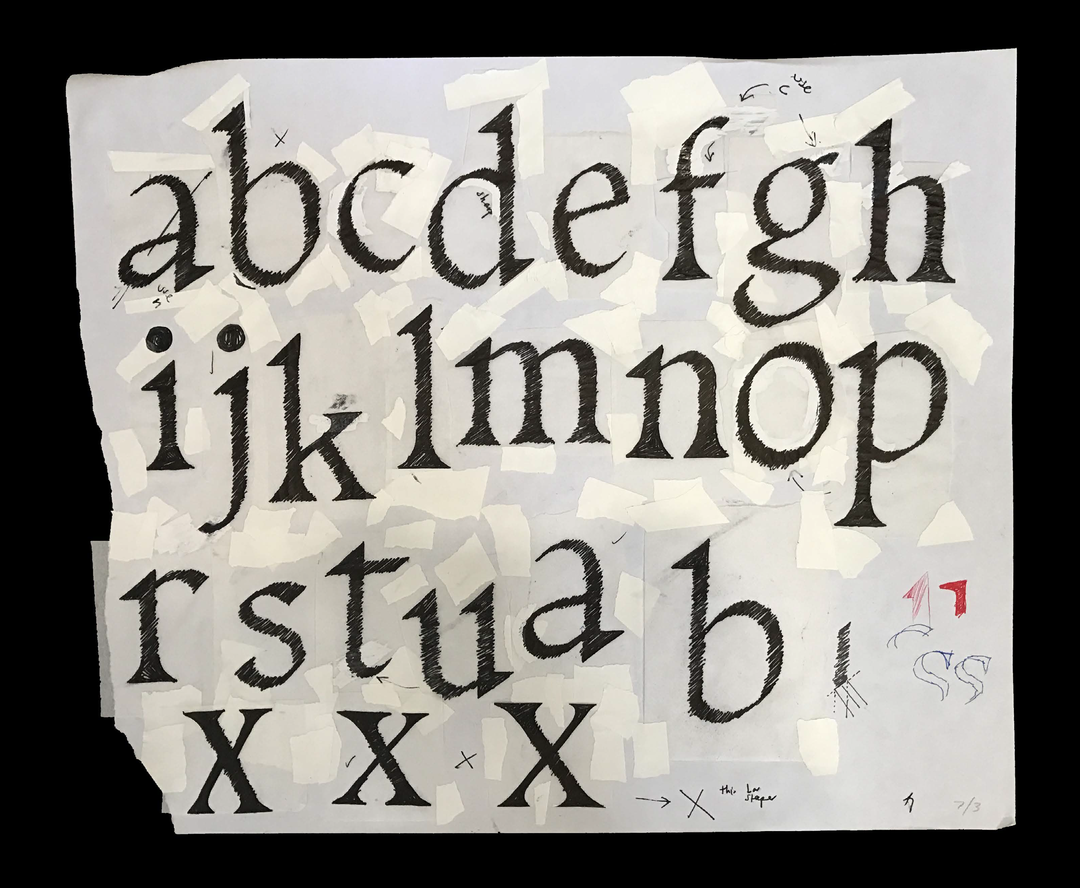 abcdefgh
ijklmnop
rstuab
xxx
x this
7/3